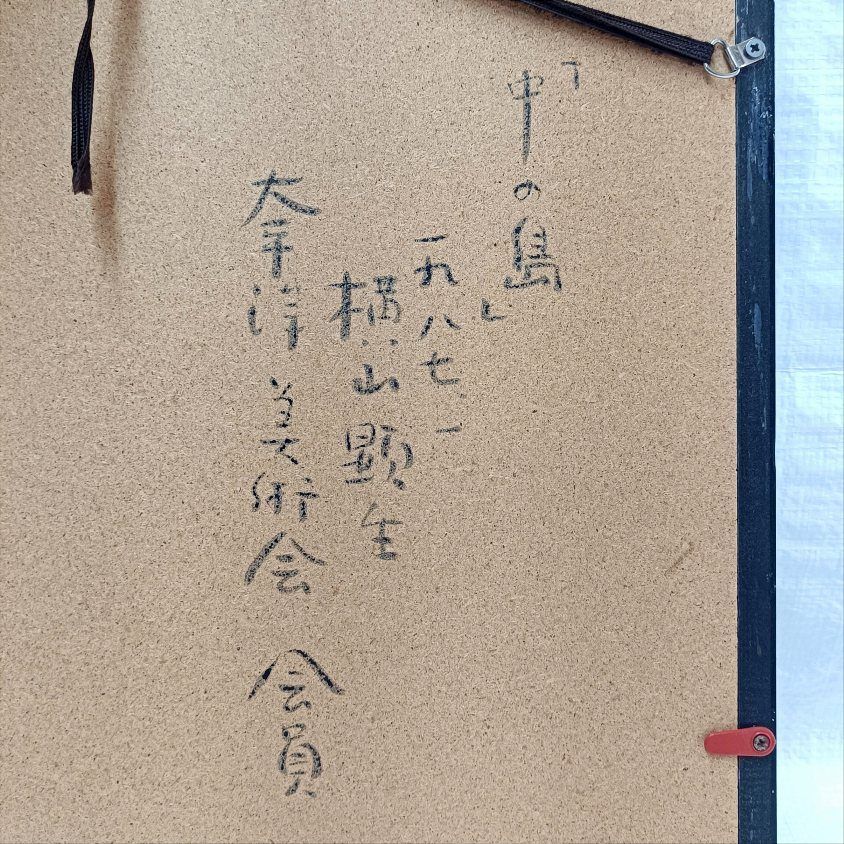 「中の島」
一九八七、一
横山顕生
太平洋美術会 会員